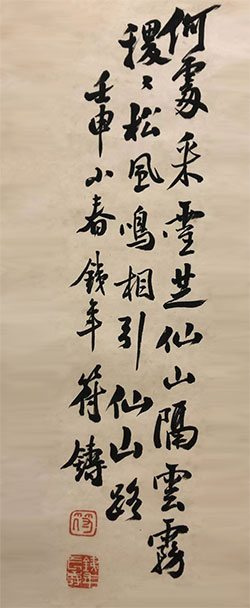 何處采靈芝仙山隔雲霧
稷〻松風鳴相引仙山路
壬申小春銕年符鑄
符